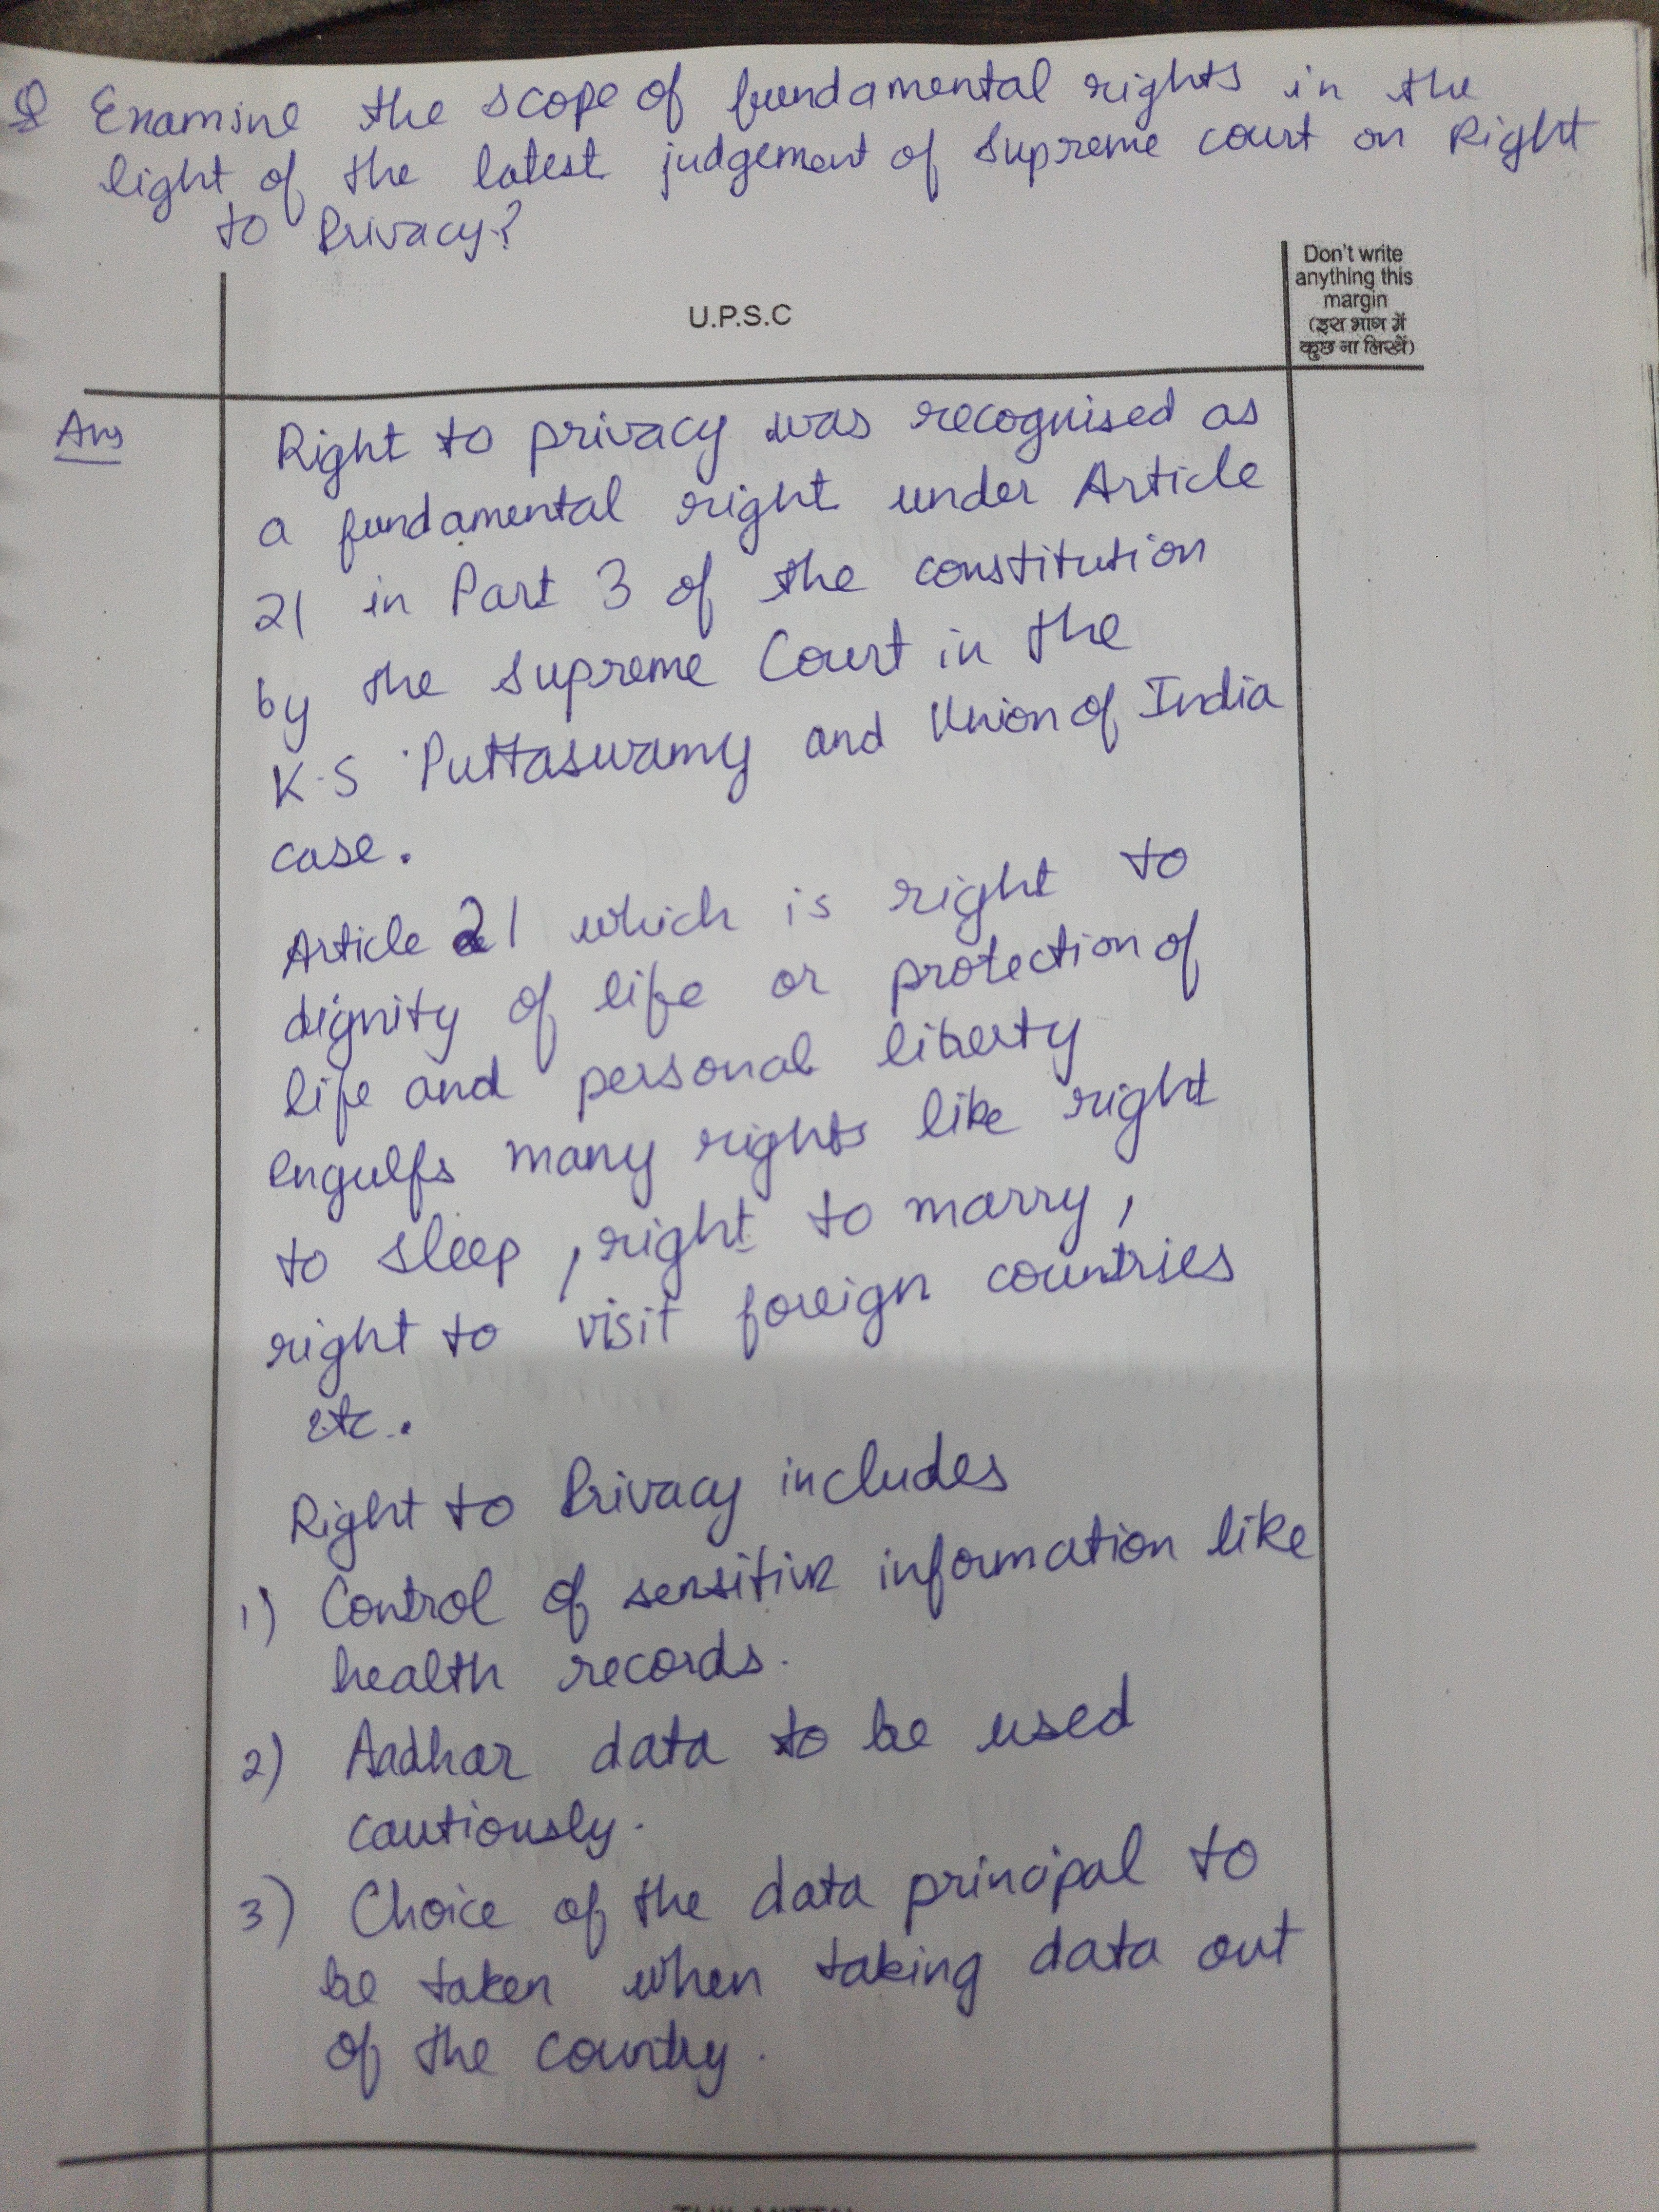 Q Examine the scope of fundamental rights in the
light of the latest judgement of Supreme court on Right
to Privacy?
U.P.S.C
Don't write
anything this
margin
(इस भाग में
कुछ ना लिखें)
Ans
Right to privacy was recognised as
a fundamental right under Article
21 in Part 3 of the constitution
by the Supreme Court in the
K.S Puttaswamy and Union of India
case.
Article 21 which is right to
dignity of life or protection of
life and personal liberty
engulfs many rights like right
to sleep, right to marry,
right to visit foreign countries
etc.
Right to Privacy includes
1) Control of sensitive information like
health records.
2) Aadhar data to be used
cautiously.
3) Choice of the data principal to
be taken when taking data out
of the country.